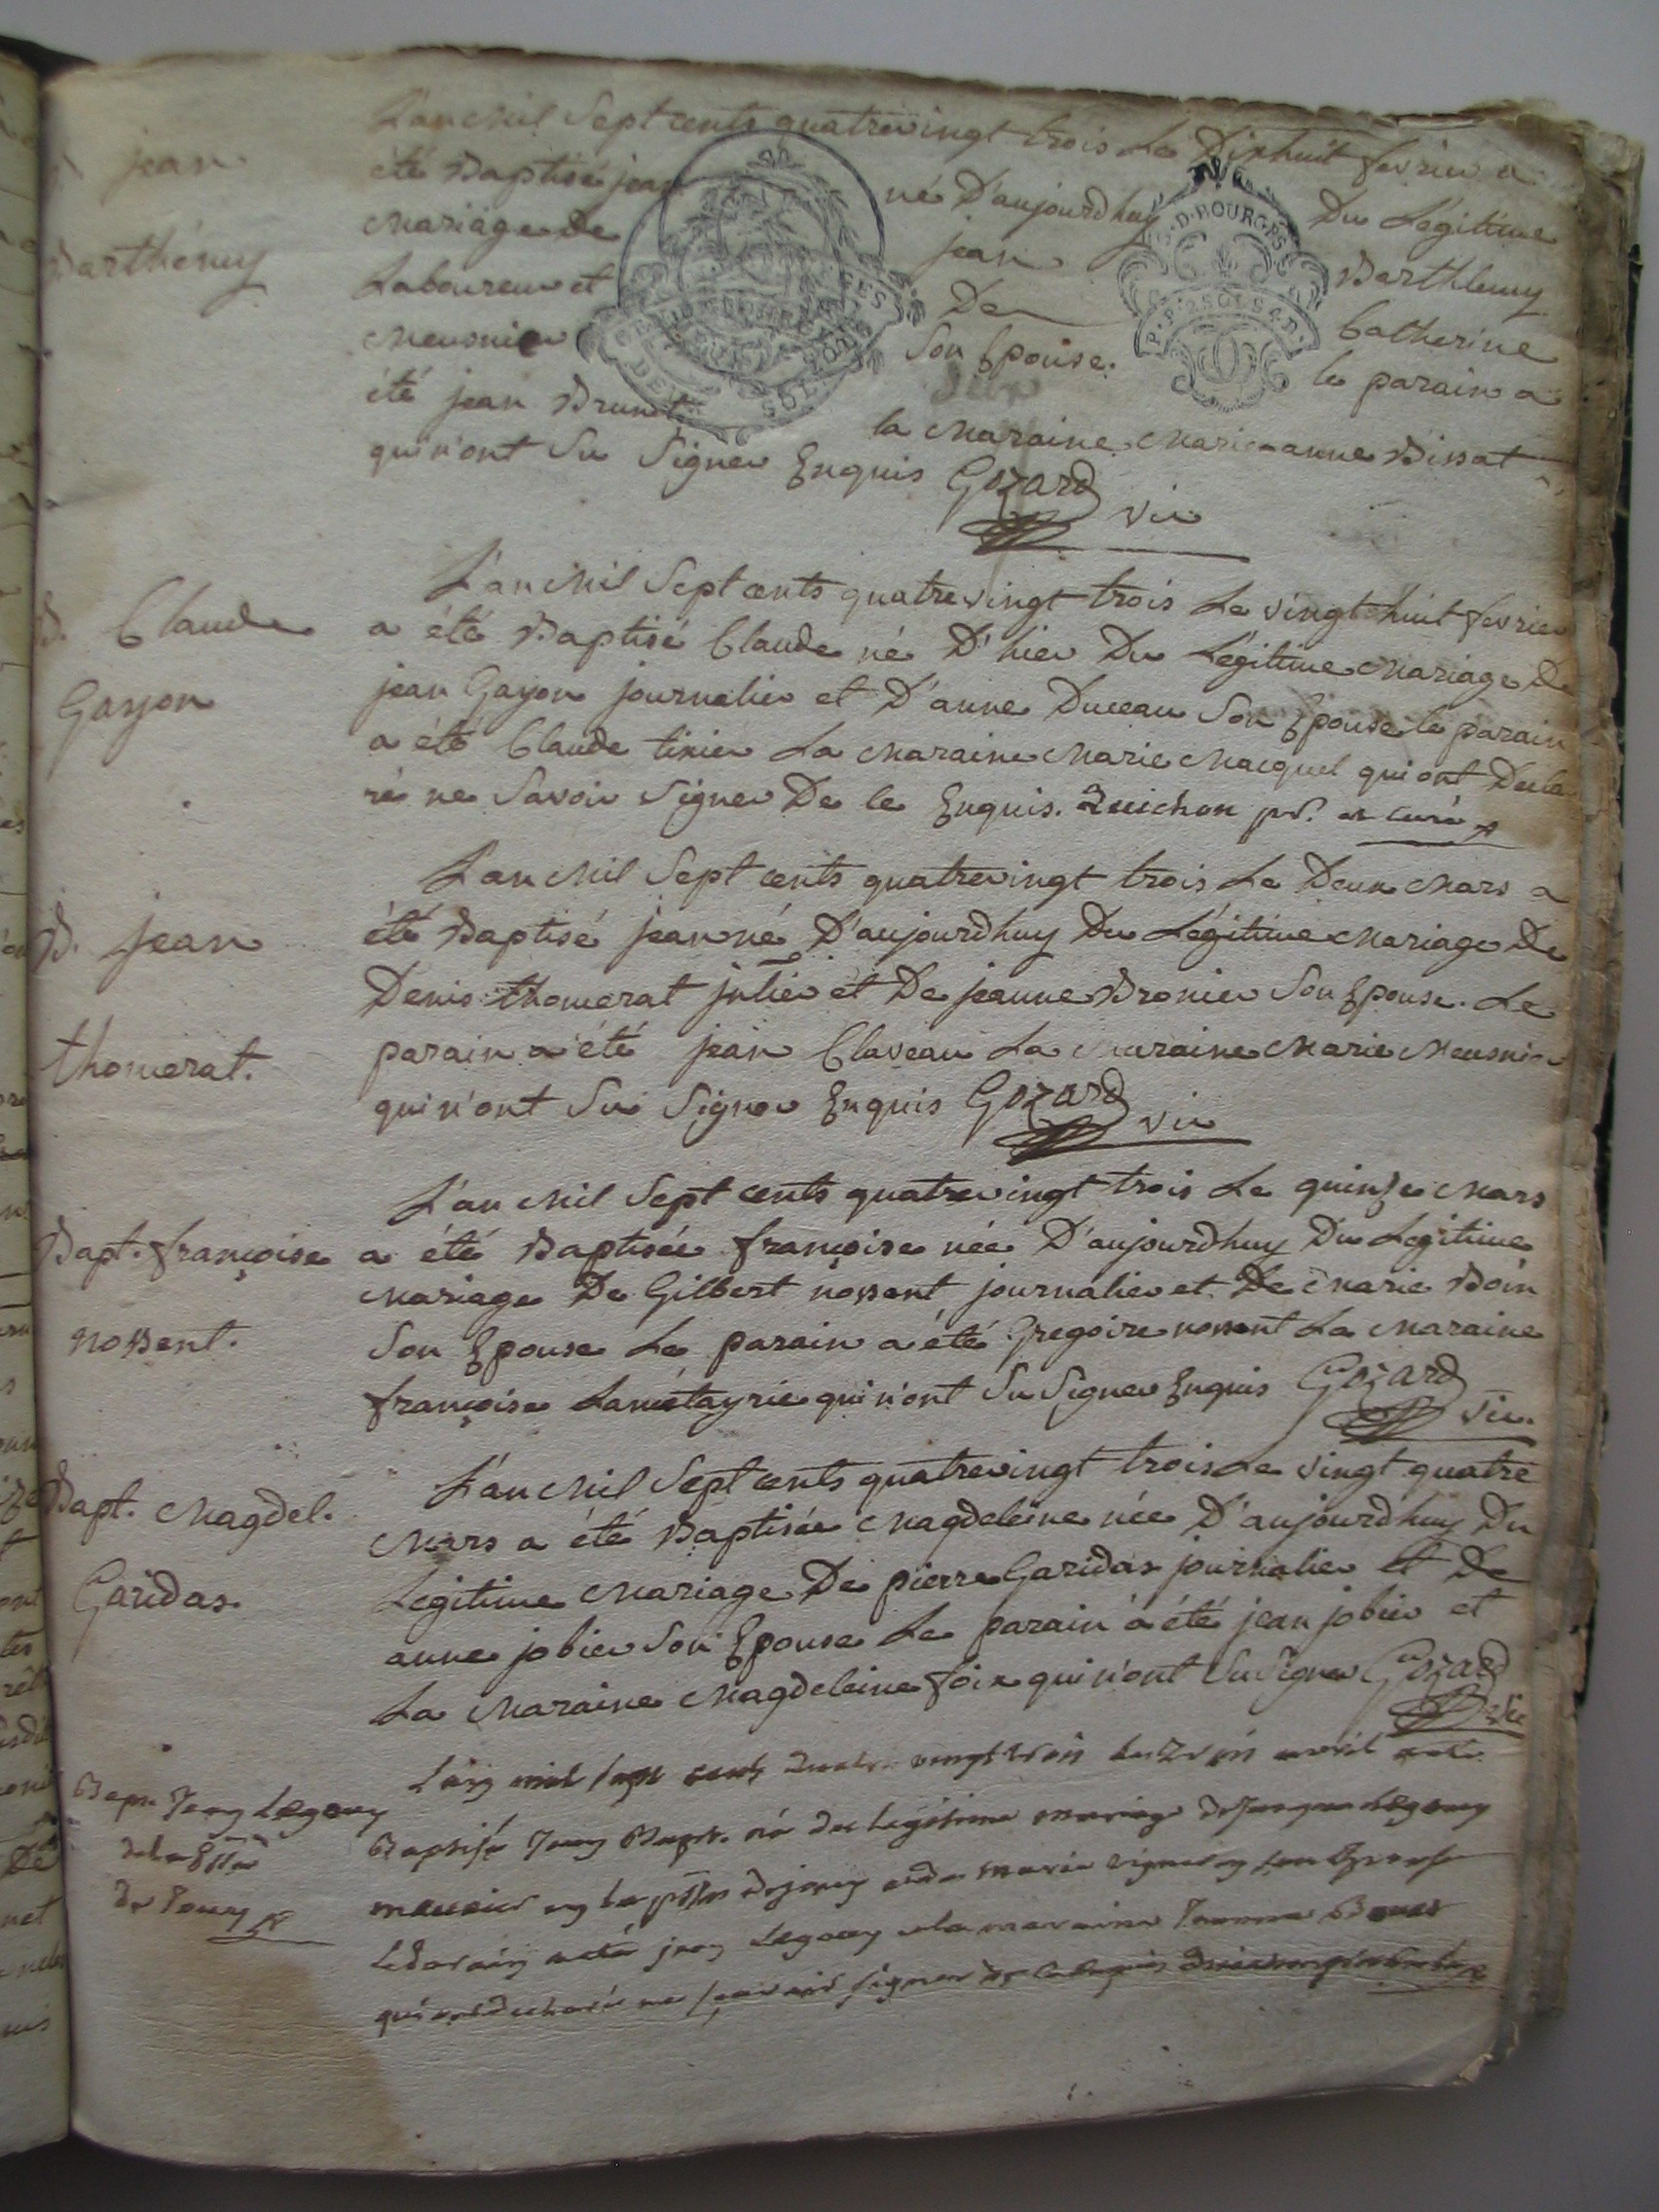 L'an Mil Sept cents quatrevingt trois Le Dixhuit fevrier a
jean
été Baptisé jean né D'aujourdhuy Du Légitime
Mariage De jean Barthlemy
Barthémy
Laboureur et De Catherine
Meusnier Son Epouse. le parain a
été jean Brunet la Maraine Marie anne Bissat
qui n'ont Su Signer Enquis Gozard vic
G. D. BOURGES
P. P. 2 SOLS 4 D.
L'an Mil Sept cents quatrevingt trois Le vingt huit fevrier
B. Claude
a été Baptisé Claude né D'hier Du Légitime Mariage De
Gayon
jean Gayon journalier et D'anne Duceau Son Epouse le parain
a été Claude tixier La Maraine Marie Macquel qui ont Decla
ré ne Savoir Signer De ce Enquis. Quichon pr. et curé
L'an Mil Sept cents quatrevingt trois Le Deux Mars a
B. jean
été Baptisé jean né D'aujourdhuy Du Légitime Mariage De
Denis thomerat et De jeanne Bronier Son Epouse. Le
thomerat.
parain a été jean Claveau La Maraine Marie Meusnier
qui n'ont Su Signer Enquis Gozard vic
L'an Mil Sept cents quatrevingt trois Le quinze Mars
Bapt. françoise
a été Baptisée françoise née D'aujourdhuy Du Legitime
Mariage De Gilbert nossent journalier et De Marie Boin
nossent.
Son Epouse Le parain a été Gregoire nossent La Maraine
françoise Lamétayrie qui n'ont Su Signer Enquis Gozard vic.
L'an Mil Sept cents quatrevingt trois Le vingt quatre
Bapt. Magdel.
Mars a été Baptisée Magdeleine née D'aujourdhuy Du
Garidas.
Legitime Mariage De pierre Garidas journalier et De
anne jobier Son Epouse Le parain a été jean jobier et
La Maraine Magdeleine foix qui n'ont Su Signer Gozard vic
L'an mil sept cents quatre vingt trois avril
Bapt. Jean Legouy
Baptisé Jean né du Legitime mariage Legouy
de Jouy
et de marie son Epouse
Le parain a été jean Legouy et la maraine
qui ont declaré ne scavoir signer